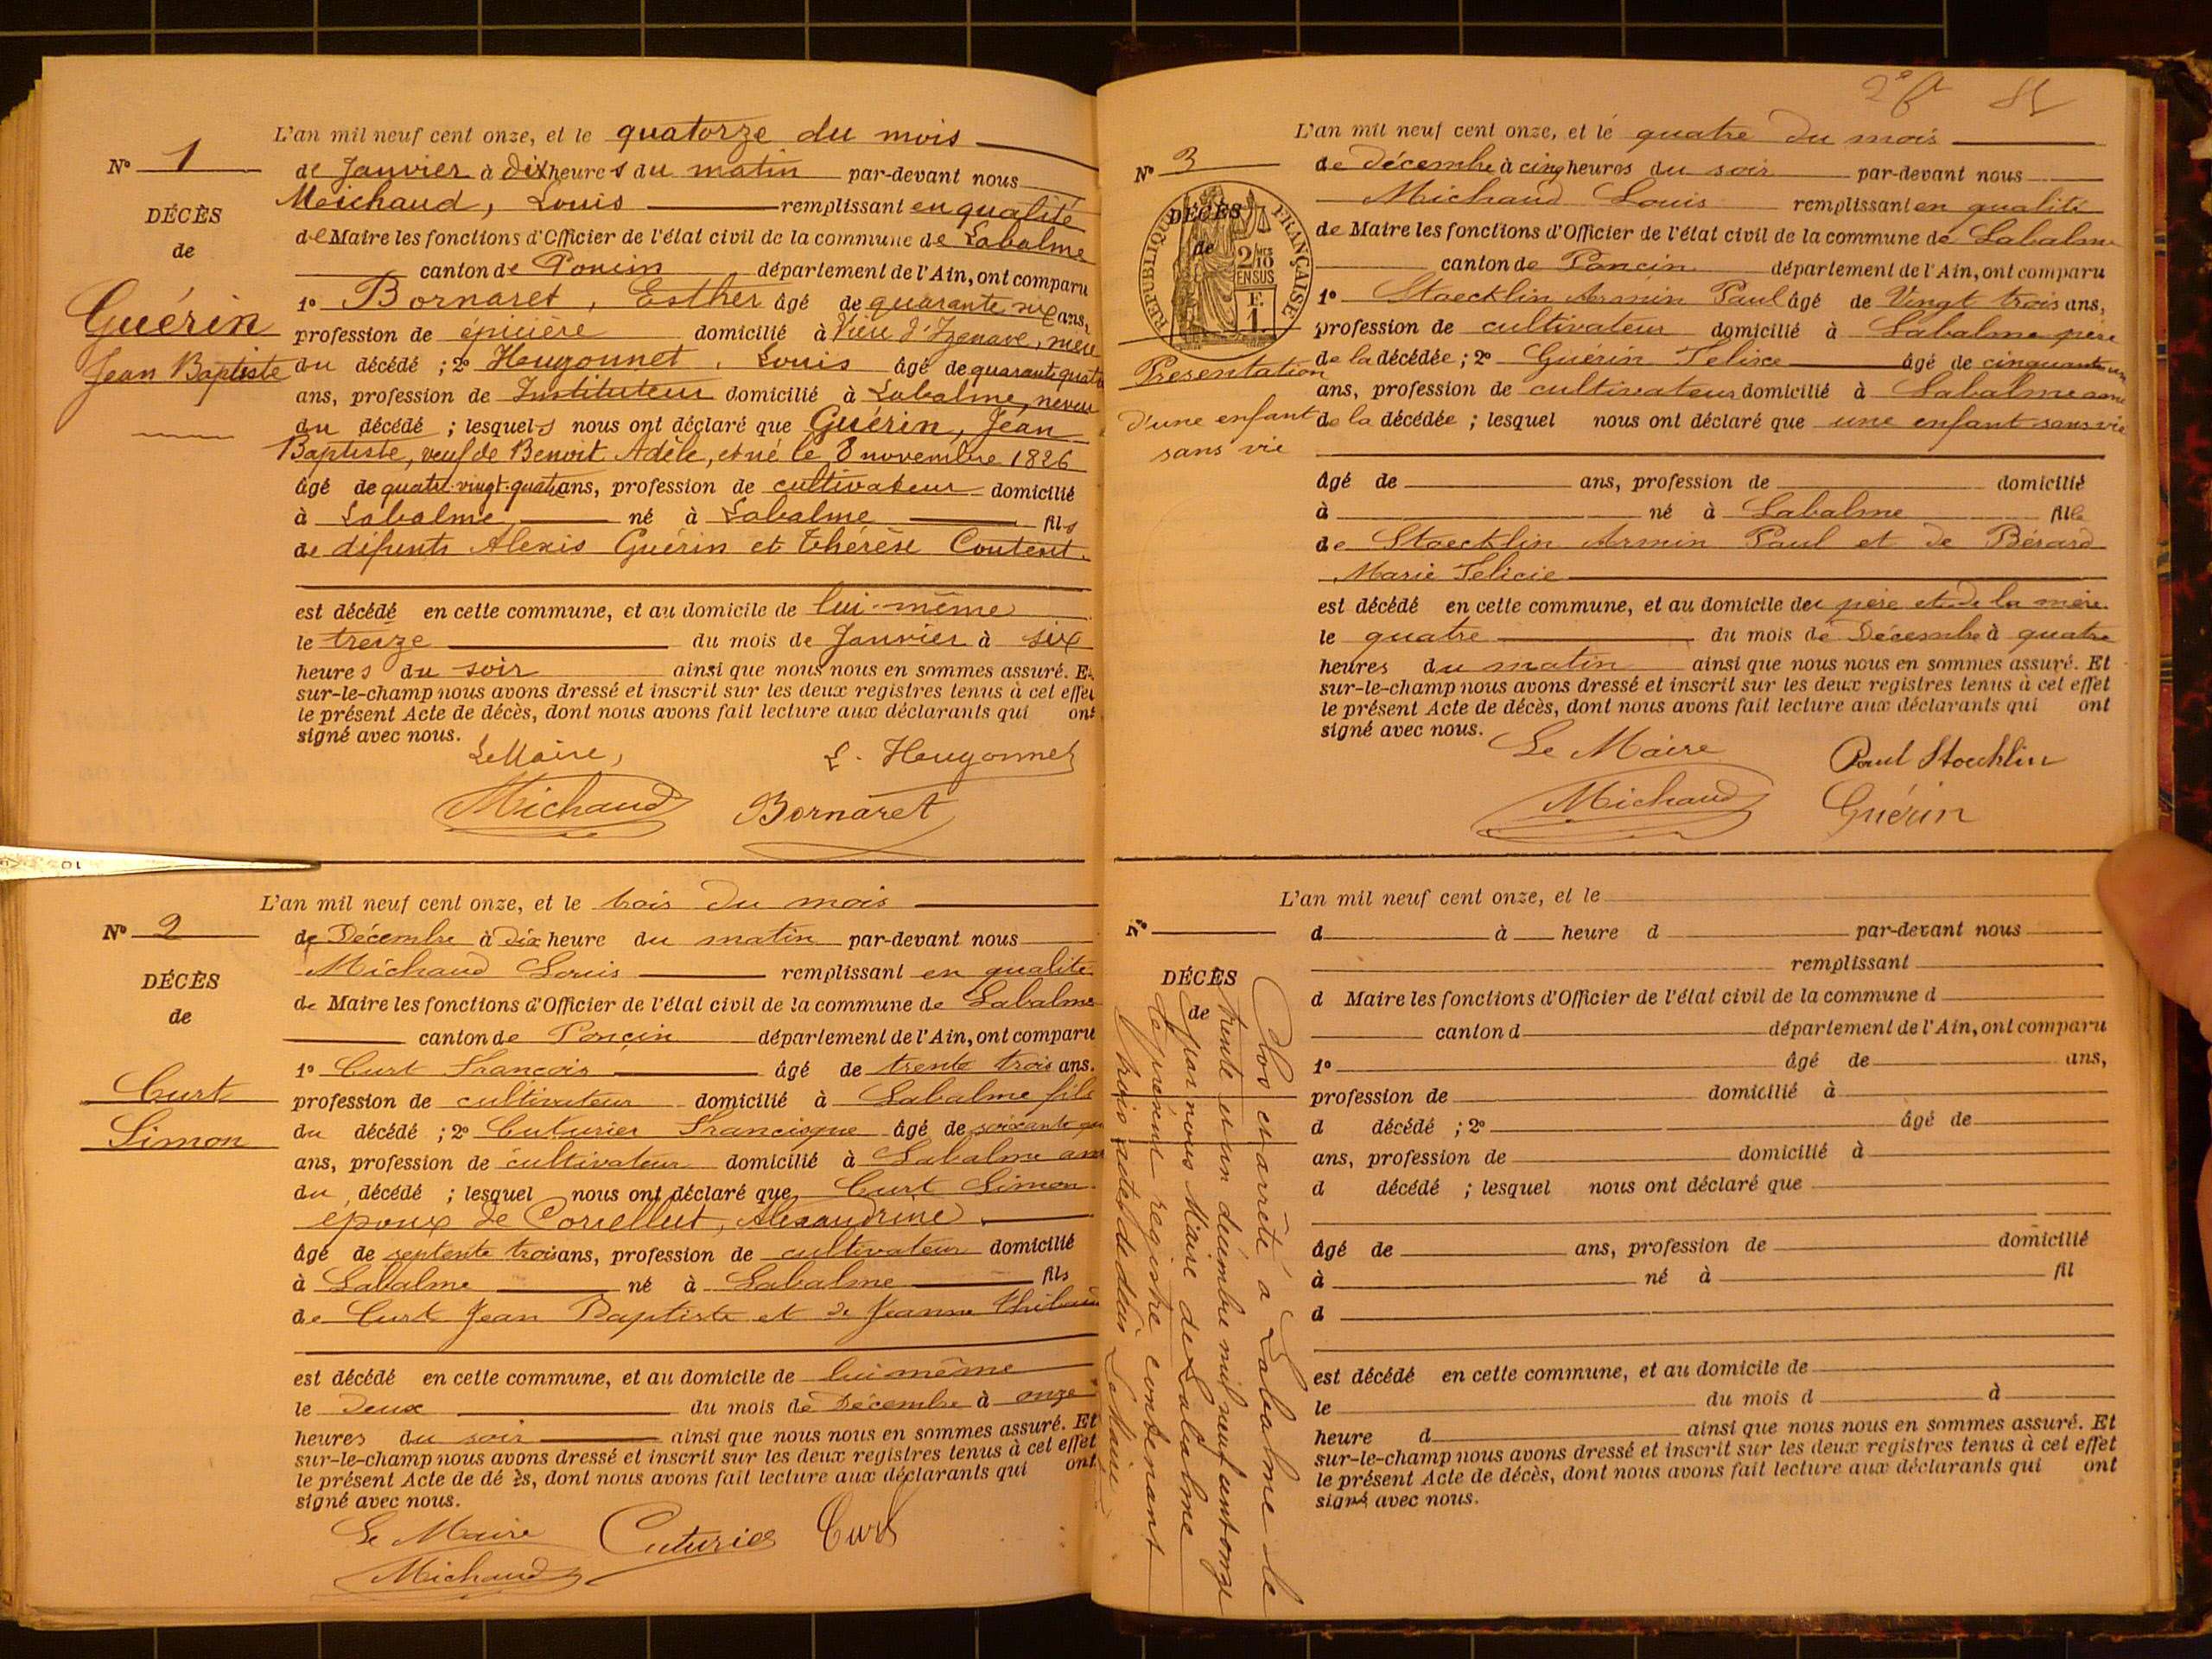 L'an mil neuf cent onze, et le quatorze du mois
N° 1
de Janvier à dix heures du matin par-devant nous
Michaud, Louis remplissant en qualité
DÉCÈS
de Maire les fonctions d'Officier de l'état civil de la commune de Labalme
de
canton de Poncin département de l'Ain, ont comparu
1° Bornaret, Esther âgé de quarante six ans,
Guérin
profession de épicière domicilié à Vieu d'Izenave,
Jean Baptiste
du décédé ; 2° Hugonnet, Louis âgé de quarante quatre
ans, profession de Instituteur domicilié à Labalme, neveu
du décédé ; lesquels nous ont déclaré que Guérin, Jean
Baptiste, veuf de Benoit Adèle, et né le 8 novembre 1826
âgé de quatre-vingt-quatre ans, profession de cultivateur domicilié
à Labalme né à Labalme fils
de défunts Alexis Guérin et Thérèse Coutent
est décédé en cette commune, et au domicile de lui-même
le treize du mois de Janvier à six
heures du soir ainsi que nous nous en sommes assuré. Et
sur-le-champ nous avons dressé et inscrit sur les deux registres tenus à cet effet
le présent Acte de décès, dont nous avons fait lecture aux déclarants qui ont
signé avec nous.
Le Maire, L. Hugonnet
Michaud Bornaret
L'an mil neuf cent onze, et le trois du mois
N° 2
de Décembre à dix heure du matin par-devant nous
Michaud Louis remplissant en qualité
DÉCÈS
de Maire les fonctions d'Officier de l'état civil de la commune de Labalme
de
canton de Poncin département de l'Ain, ont comparu
1° Curt François âgé de trente trois ans.
Curt
profession de cultivateur domicilié à Labalme fils
Simon
du décédé ; 2° Cuturier Francisque âgé de soixante
ans, profession de cultivateur domicilié à Labalme ami
du décédé ; lesquel nous ont déclaré que Curt Simon
époux de Corellut, Alexandrine
âgé de septente trois ans, profession de cultivateur domicilié
à Labalme né à Labalme fils
de Curt Jean Baptiste et de Jeanne Thibaud
est décédé en cette commune, et au domicile de lui même
le deux du mois de Décembre à onze
heures du soir ainsi que nous nous en sommes assuré. Et
sur-le-champ nous avons dressé et inscrit sur les deux registres tenus à cet effet
le présent Acte de dé ès, dont nous avons fait lecture aux déclarants qui ont
signé avec nous.
Le Maire Cuturier Curt
Michaud
L'an mil neuf cent onze, et le quatre du mois
N° 3
de décembre à cinq heures du soir par-devant nous
Michaud Louis remplissant en qualité
DÉCÈS
de
RÉPUBLIQUE FRANÇAISE
2/10 EN SUS
F. 1.
de Maire les fonctions d'Officier de l'état civil de la commune de Labalme
canton de Poncin département de l'Ain, ont comparu
1° Stoecklin Armin Paul âgé de Vingt trois ans,
profession de cultivateur domicilié à Labalme père
Présentation
d'une enfant
sans vie
de la décédée ; 2° Guérin Felix âgé de cinquante un
ans, profession de cultivateur domicilié à Labalme ami
de la décédée ; lesquel nous ont déclaré que une enfant sans vie
âgé de ans, profession de domicilié
à né à Labalme fille
de Stoecklin Armin Paul et de Bérard
Marie Felicie
est décédé en cette commune, et au domicile des père et de la mère
le quatre du mois de Décembre à quatre
heures du matin ainsi que nous nous en sommes assuré. Et
sur-le-champ nous avons dressé et inscrit sur les deux registres tenus à cet effet
le présent Acte de décès, dont nous avons fait lecture aux déclarants qui ont
signé avec nous.
Le Maire Paul Stoecklin
Michaud Guérin
L'an mil neuf cent onze, et le
N°
d à heure d par-devant nous
remplissant
DÉCÈS
de
d Maire les fonctions d'Officier de l'état civil de la commune d
canton d département de l'Ain, ont comparu
1° âgé de ans,
profession de domicilié à
d décédé ; 2° âgé de
ans, profession de domicilié à
d décédé ; lesquel nous ont déclaré que
âgé de ans, profession de domicilié
à né à fil
d
est décédé en cette commune, et au domicile de
le du mois d à
heure d ainsi que nous nous en sommes assuré. Et
sur-le-champ nous avons dressé et inscrit sur les deux registres tenus à cet effet
le présent Acte de décès, dont nous avons fait lecture aux déclarants qui ont
signé avec nous.
Clos et arrêté à Labalme le
trente et un décembre mil neuf cent onze
par nous Maire de Labalme
le présent registre contenant
trois actes de décès Le Maire